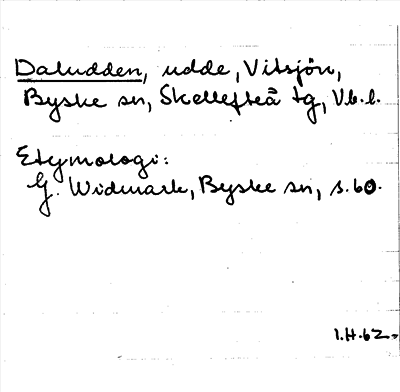 Daludden, udde, Vitsjön,
Byske sn, Skellefteå tg, Vb.l.
Etymologi:
G. Widmark, Byske sn, s. 60.
I.H. 62